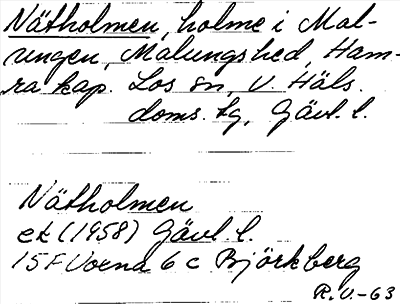 Nätholmen, holme i Mal-
ungen, Malungshed, Ham-
ra kap. Los sn, V. Häls.
doms. tg, Gävl. l.
Nätholmen
ek (1958) Gävl. l.
15F Voxna 6 c Björkberg
R.V.-63